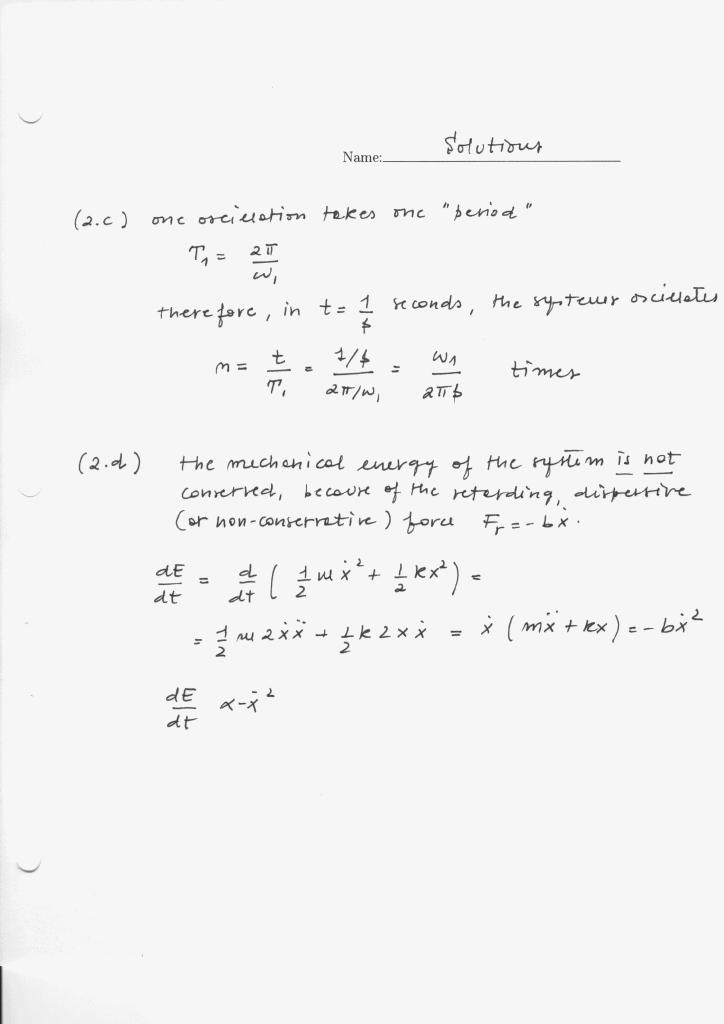 Name: Solutions
(2.c) one oscillation takes one "period"
T₁ = 2π/ω₁
therefore, in t = 1/β seconds, the systems oscillates
n = t/T₁ = (1/β)/(2π/ω₁) = ω₁/(2πβ) times
(2.d) the mechanical energy of the system is not
conserved, because of the retarding, dispersive
(or non-conservative) force Fᵣ = -bẋ.
dE/dt = d/dt (½ m ẋ² + ½ kx²) =
= ½ m 2ẋẍ + ½ k 2xẋ = ẋ (mẍ + kx) = -bẋ²
dE/dt ∝ -ẋ²